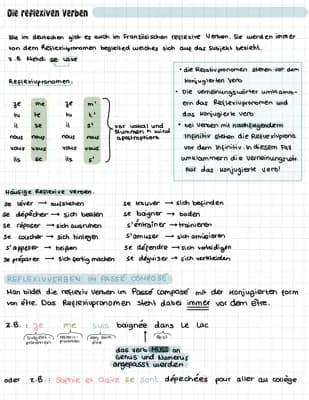 Die reflexiven Verben
Wie im deutschen gibt es auch im Französischen reflexive Verben. Sie werden immer
von dem Reflexivpronomen begleitet welches sich auf das Subjekt bezieht.
z.B. Mehdi se lave
Reflexivpronomen:
je me je m'
tu te tu t'
il se il s'
nous nous nous nous
vous vous vous vous
ils se ils s'
vor vokal und
stummem h wird
apostrophiert
• die Relativpronomen stehen vor dem
konjugierten verb
• Die verneinungswörter umklamm-
ern das Reflexivpronomen und
das konjugierte verb
• bei verben mit nachfolgendem
Infinitiv stehen die Reflexivprono.
vor dem Infinitiv. In diesem Fall
umklammern die verneinungswör.
nur das konjugierte verb!
Häufige Reflexive verben.
se lever → aufstehen
se dépêcher → sich beeilen
se reposer → sich ausruhen
se coucher → sich hinlegen
s'appeler → heißen
se préparer → sich fertig machen
se trouver → sich befinden
se baigner → baden
s'entraîner → trainieren
s'amuser → sich amüsieren
se défendre → sich verteidigen
se déguiser → sich verkleiden
REFLEXIVVERBEN IM PASSÉ COMPOSÉ
Man bildet die reflexiv verben im Passé Composé mit der konjugierten form
von être. Das Reflexivpronomen steht dabei immer vor dem être.
z.B.: je me suis baignée dans le lac
das verb MUSS an
Genus und Numerus
angepasst werden
oder z.B.: Sophie et Claire se sont dépechées pour aller au collège